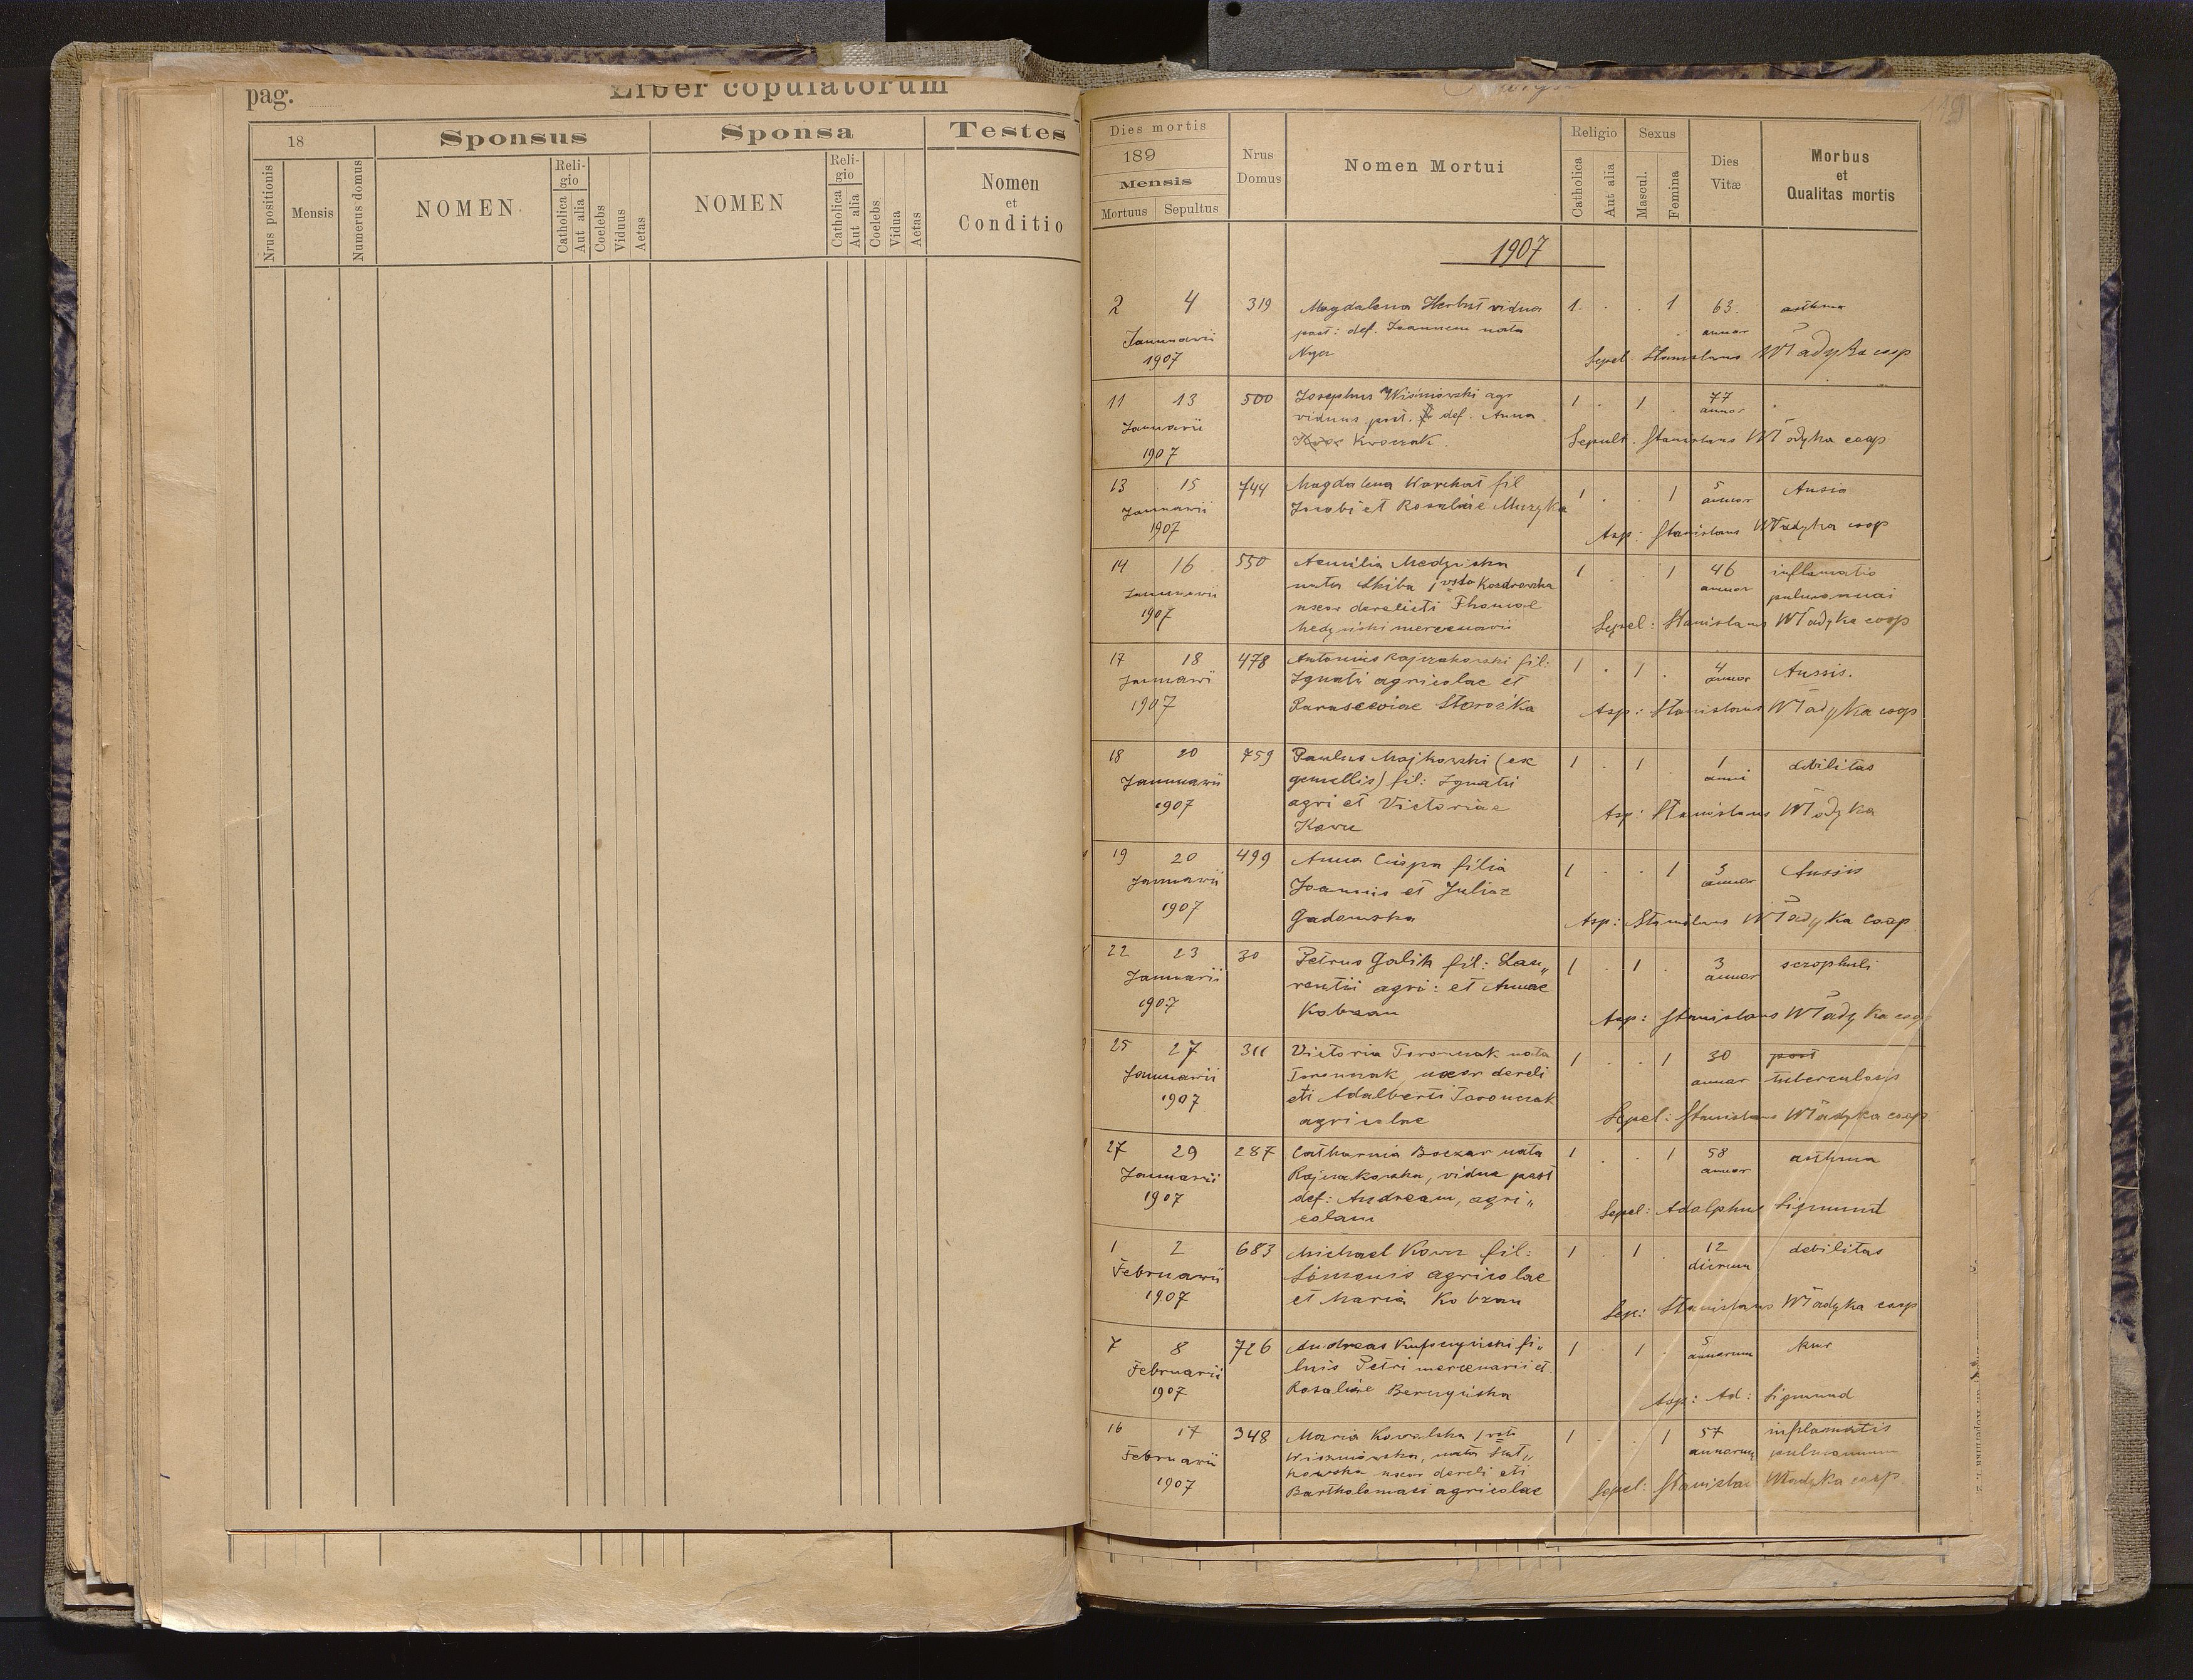 pag.
Liber copulatorum
18
Sponsus
Sponsa
Testes
Nrus positionis
Mensis
Numerus domus
NOMEN
Religio
Catholica
Aut alia
Coelebs
Viduus
Aetas
NOMEN
Religio
Catholica
Aut alia
Coelebs
Vidua
Aetas
Nomen
et
Conditio
Dies mortis
189
Mensis
Mortuus Sepultus
Nrus
Domus
Nomen Mortui
Religio
Catholica
Aut alia
Sexus
Mascul.
Femina
Dies
Vitæ
Morbus
et
Qualitas mortis
1907
2 4 319 Magdalena Herbut vidua 1 . . 1 63. asthma
Januarii post: def. Joannem nata annor
1907 Sepel. Stanislaus Władyka coop
11 13 500 Josephus Wiśniowski agr 1 . 1 . 77
Januarii viduus post. def. Anna annor
1907 Kroczak. Sepult. Stanislaus Władyka coop
13 15 744 Magdalena Korchat fil 1 . . 1 5 Ausia
Januarii Jacobi et Rosaliae Muzyka annor
1907 Asp: Stanislaus Władyka coop
14 16 550 Aemilia Medyńska 1 . . 1 46 inflamatio
Januarii nata Skiba 1 voto Kozdrowska annor
1907 uxor derelicti Thomae
Medyński mercenarii Sepel: Stanislaus Władyka coop
17 18 478 Antonius Rajzakowski fil: 1 . 1 . 4 Aussis.
Januarii Ignatii agricolae et annor
1907 Parasceviae Storożka Asp: Stanislaus Władyka coop
18 20 759 Paulus Majkowski (ex 1 . 1 . 1 debilitas
Januarii gemellis) fil: Ignatii anni
1907 agri et Victoriae Asp: Stanislaus Władyka
19 20 499 Anna Ciepa filia 1 . . 1 3 Aussis
Januarii Joannis et Juliae annor
1907 Gadomska Asp: Stanislaus Władyka coop
22 23 30 Petrus Galik fil: Lau„ 1 . 1 . 3 scrophuli
Januarii rentii agri: et Annae annor
1907 Kobzan Asp: Stanislaus Władyka coop
25 27 311 Victoria Toronczak nata 1 . . 1 30 post
Januarii Toronczak uxor dereli annor tuberculosis
1907 cti Adalberti Toronczak
agricolae Sepel: Stanislaus Władyka coop
27 29 287 Catharina Boczar nata 1 . . 1 58 asthma
Januarii Rajzakowska, vidua post annor
1907 def: Andream, agri„
colam Sepel: Adolphus Sigmund
1 2 683 Michael Kowcz fil: 1 . 1 . 12 debilitas
Februarii Simonis agricolae dierum
1907 et Maria Kobzan Sep: Stanislaus Władyka coop
7 8 726 Andreas Kupczyński fi„ 1 . 1 . 5 kur
Februarii lius Petri mercenarii et annorum
1907 Rosaliae Berczyńska Asp: Ad: Sigmund
16 17 348 Maria Kowalska 1 voto 1 . . 1 57 inflamatis
Februarii Wiszniowska, nata annorum pulmonum
1907 uxor dereli cti
Bartholomaei agricolae Sepel: Stanislaus Władyka coop